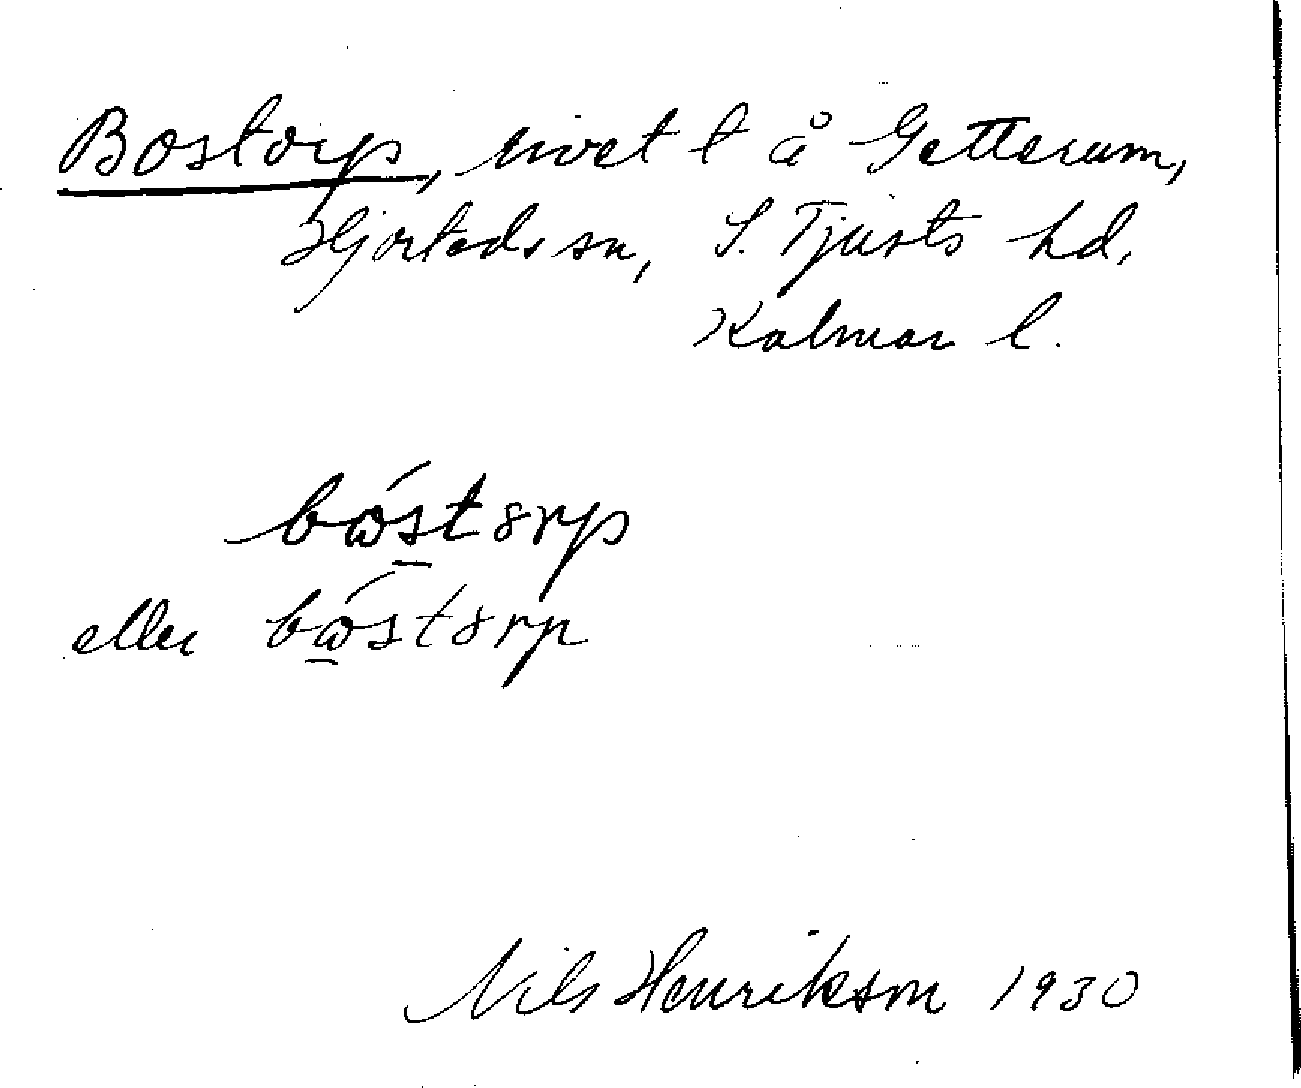 Bostorp, rivet t å Getterum,
Hjorteds sn, S. Tjusts hd,
Kalmar l.
bɷ́s̲tȣrp
eller bɷ̲́stȣrp
Nils Henrikson 1930